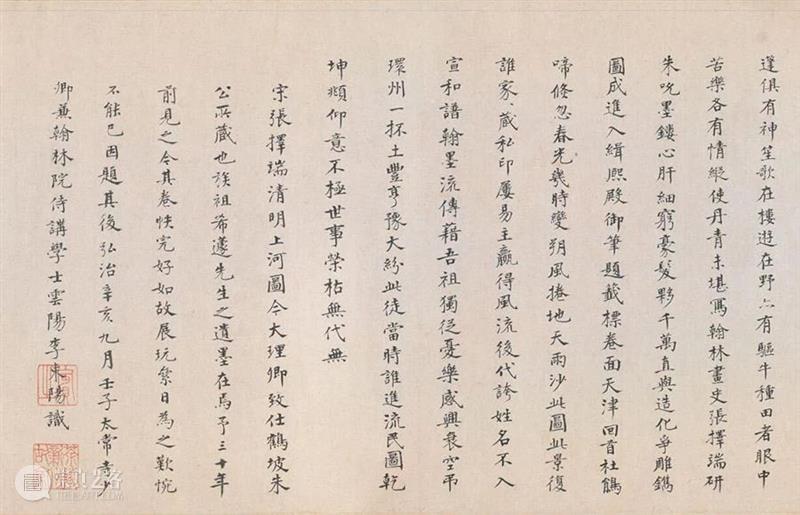 蓬俱有神笙歌在樓遊在野亦有驅牛種田者眼中
苦樂各有情縱使丹青未堪寫翰林畫史張擇端研
朱吮墨鏤心肝細窮豪髮夥千萬直與造化爭雕鐫
圖成進入緝熙殿御筆題籤標卷面天津回首杜鵑
啼倏忽春光幾時變朔風捲地天雨沙此圖此景復
誰家、藏私印屢易主贏得風流後代誇姓名不入
宣和譜翰墨流傳藉吾祖獨從憂樂感興衰空弔
環州一杯土豐亨豫大紛此徒當時誰進流民圖乾
坤頫仰意不極世事榮枯無代無
宋張擇端清明上河圖今大理卿致仕鶴坡朱
公所藏也族祖希蘧先生之遺墨在焉予三十年
前見之今其卷帙完好如故展玩累日為之歎惋
不能已因題其後弘治辛亥九月壬子太常寺少
卿兼翰林院侍講學士雲陽李東陽識